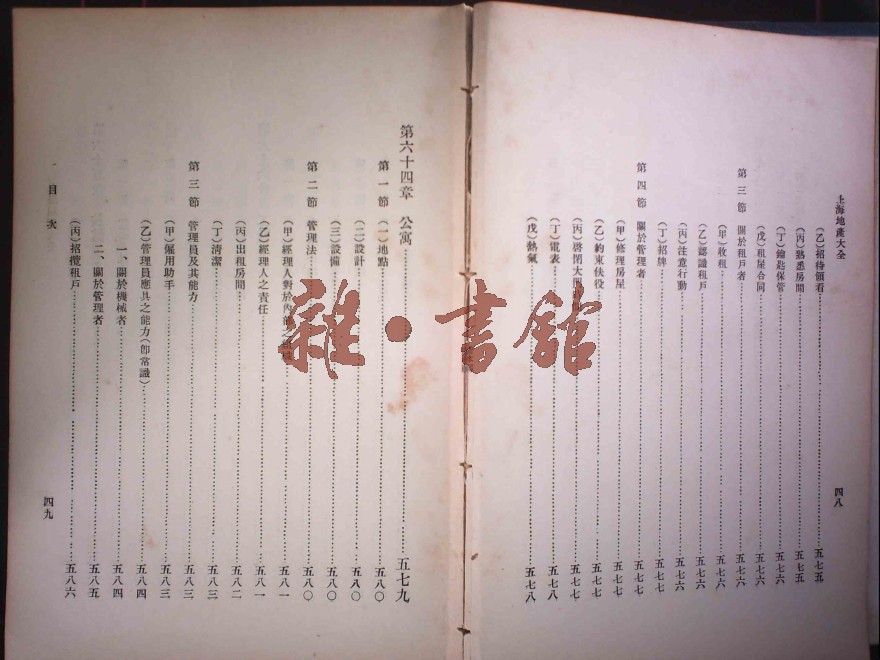 上海地產大全
四八
（乙）招待領看……五七五
（丙）熟悉房間……五七五
（丁）鑰匙保管……五七六
（戊）租屋合同……五七六
第三節　關於租戶者……五七六
（甲）收租……五七六
（乙）認識租戶……五七六
（丙）注意行動……五七六
（丁）招牌……五七七
第四節　關於管理者……五七七
（甲）修理房屋……五七七
（乙）約束伕役……五七七
（丙）啓閉大門……五七七
（丁）電表……五七八
（戊）熱氣……五七八
第六十四章　公寓……五七九
第一節　（一）地點……五八〇
（二）設計……五八〇
（三）設備……五八〇
第二節　管理法……五八〇
（甲）經理人對於內部之……五八一
（乙）經理人之責任……五八一
（丙）出租房間……五八二
（丁）清潔……五八三
第三節　管理員及其能力……五八三
（甲）僱用助手……五八三
（乙）管理員應具之能力（卽常識）……五八四
一、關於機械者……五八四
二、關於管理者……五八五
（丙）招攬租戶……五八六
目次
四九
雜·書館